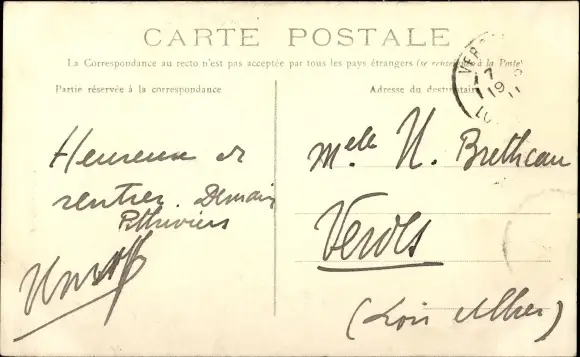 CARTE POSTALE
La Correspondance au recto n'est pas acceptée par tous les pays étrangers (se renseigner à la Poste)
Partie réservée à la correspondance
Adresse du destinataire
Heureux de
rentrer. Demain
Pithiviers
Melle H. Bretheau
Verdes
(Loir et Cher)
VER
17
19
LO